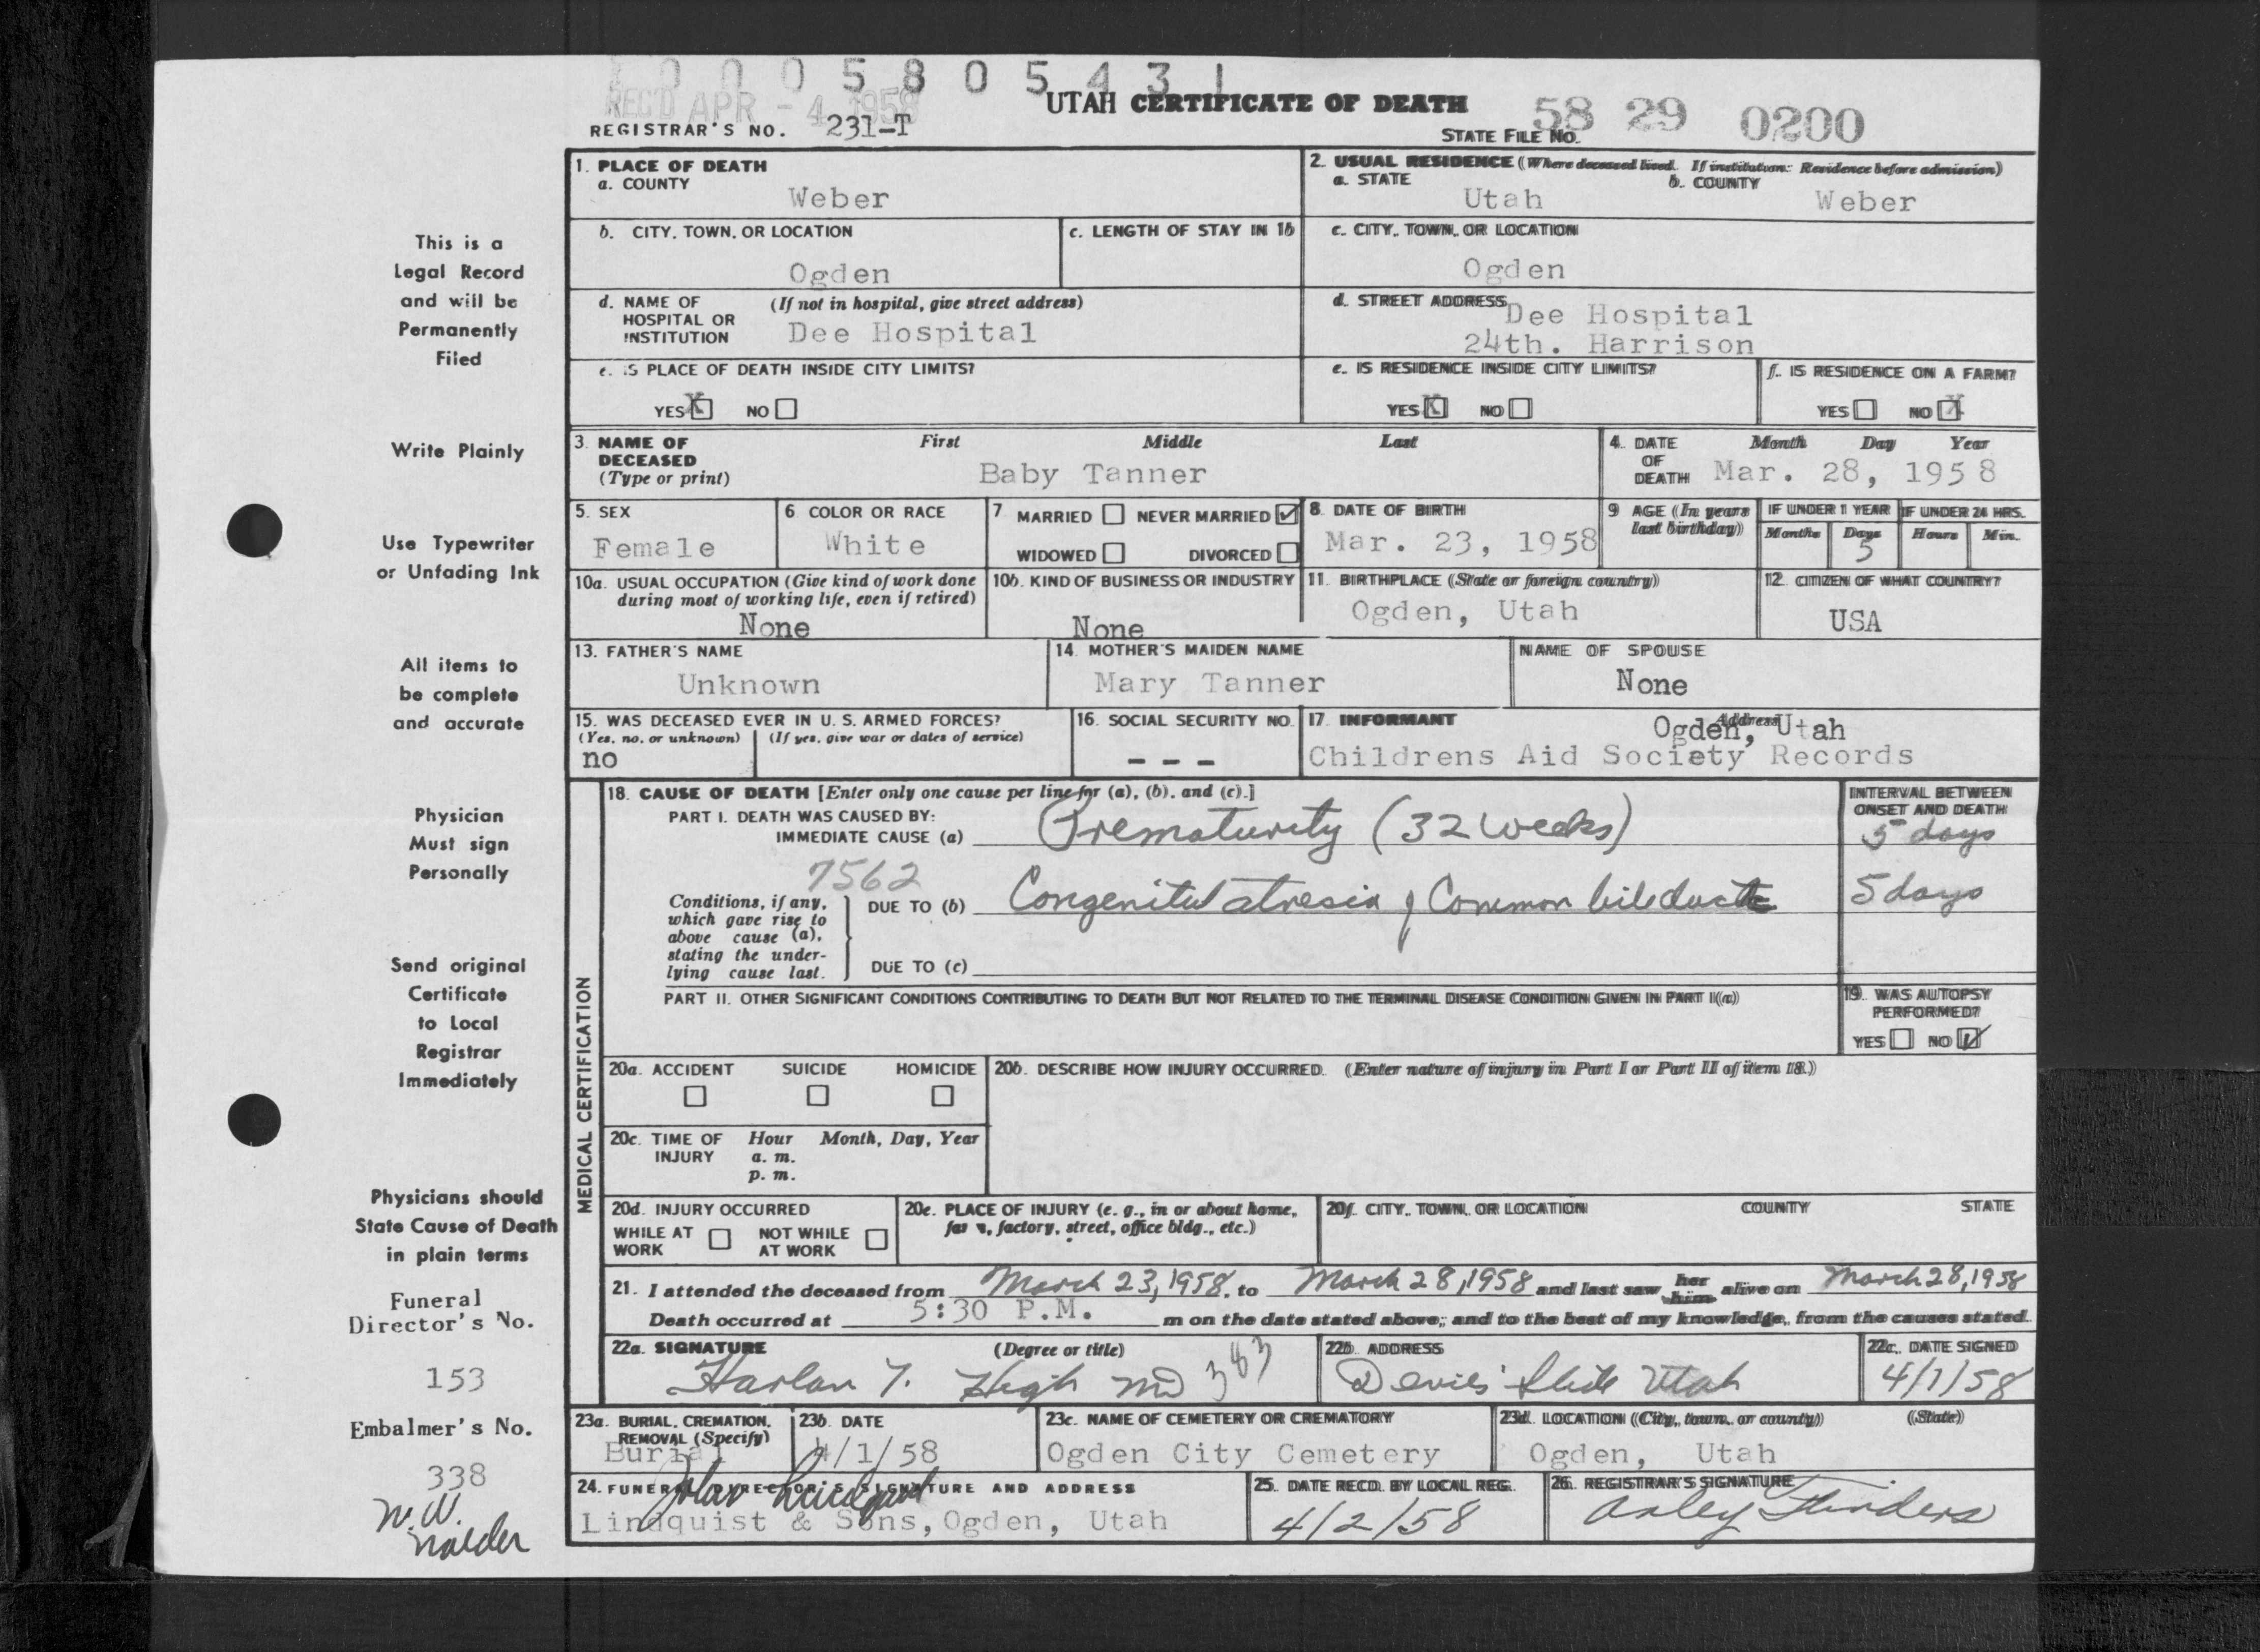 1 0 0 0 5 8 0 5 4 3 1
REC'D APR - 4 1958
UTAH CERTIFICATE OF DEATH
58 29 0200
REGISTRAR'S NO. 231-T
STATE FILE No.
1. PLACE OF DEATH
a. COUNTY
Weber
2. USUAL RESIDENCE (Where deceased lived. If institution: Residence before admission)
a. STATE
Utah
b. COUNTY
Weber
b. CITY, TOWN, OR LOCATION
Ogden
c. LENGTH OF STAY IN 1b
c. CITY, TOWN, OR LOCATION
Ogden
d. NAME OF HOSPITAL OR INSTITUTION
(If not in hospital, give street address)
Dee Hospital
d. STREET ADDRESS
Dee Hospital
24th. Harrison
e. IS PLACE OF DEATH INSIDE CITY LIMITS?
YES X NO
e. IS RESIDENCE INSIDE CITY LIMITS?
YES X NO
f. IS RESIDENCE ON A FARM?
YES NO X
3. NAME OF DECEASED (Type or print)
First Middle Last
Baby Tanner
4. DATE OF DEATH
Month Day Year
Mar. 28, 1958
5. SEX
Female
6 COLOR OR RACE
White
7 MARRIED NEVER MARRIED ✓
WIDOWED DIVORCED
8. DATE OF BIRTH
Mar. 23, 1958
9 AGE (In years last birthday)
IF UNDER 1 YEAR
Months Days
5
IF UNDER 24 HRS.
Hours Min.
10a. USUAL OCCUPATION (Give kind of work done during most of working life, even if retired)
None
10b. KIND OF BUSINESS OR INDUSTRY
None
11. BIRTHPLACE (State or foreign country)
Ogden, Utah
12. CITIZEN OF WHAT COUNTRY?
USA
13. FATHER'S NAME
Unknown
14. MOTHER'S MAIDEN NAME
Mary Tanner
NAME OF SPOUSE
None
15. WAS DECEASED EVER IN U. S. ARMED FORCES?
(Yes, no, or unknown) (If yes, give war or dates of service)
no
16. SOCIAL SECURITY NO.
- - -
17. INFORMANT
Address
Ogden, Utah
Childrens Aid Society Records
MEDICAL CERTIFICATION
18. CAUSE OF DEATH [Enter only one cause per line for (a), (b), and (c).]
PART I. DEATH WAS CAUSED BY:
IMMEDIATE CAUSE (a) Prematurity (32 weeks)
INTERVAL BETWEEN ONSET AND DEATH
5 days
7562
Conditions, if any, which gave rise to above cause (a), stating the underlying cause last.
DUE TO (b) Congenital atresia of Common bile duct
5 days
DUE TO (c)
PART II. OTHER SIGNIFICANT CONDITIONS CONTRIBUTING TO DEATH BUT NOT RELATED TO THE TERMINAL DISEASE CONDITION GIVEN IN PART I(a)
19. WAS AUTOPSY PERFORMED?
YES NO ✓
20a. ACCIDENT SUICIDE HOMICIDE
20b. DESCRIBE HOW INJURY OCCURRED. (Enter nature of injury in Part I or Part II of item 18.)
20c. TIME OF INJURY
Hour Month, Day, Year
a. m.
p. m.
20d. INJURY OCCURRED
WHILE AT WORK NOT WHILE AT WORK
20e. PLACE OF INJURY (e. g., in or about home, farm, factory, street, office bldg., etc.)
20f. CITY, TOWN, OR LOCATION COUNTY STATE
21. I attended the deceased from March 23, 1958, to March 28, 1958 and last saw her him alive on March 28, 1958
Death occurred at 5:30 P.M. m on the date stated above; and to the best of my knowledge, from the causes stated.
22a. SIGNATURE (Degree or title)
Harlan T. High MD 383
22b. ADDRESS
Devils Slide Utah
22c. DATE SIGNED
4/1/58
23a. BURIAL, CREMATION, REMOVAL (Specify)
Burial
23b. DATE
4/1/58
23c. NAME OF CEMETERY OR CREMATORY
Ogden City Cemetery
23d. LOCATION (City, town, or county) (State)
Ogden, Utah
24. FUNERAL DIRECTOR'S SIGNATURE AND ADDRESS
John Lindquist
Lindquist & Sons, Ogden, Utah
25. DATE RECD. BY LOCAL REG.
4/2/58
26. REGISTRAR'S SIGNATURE
Flinders
This is a
Legal Record
and will be
Permanently
Filed
Write Plainly
Use Typewriter
or Unfading Ink
All items to
be complete
and accurate
Physician
Must sign
Personally
Send original
Certificate
to Local
Registrar
Immediately
Physicians should
State Cause of Death
in plain terms
Funeral
Director's No.
153
Embalmer's No.
338
W. W.
Nalder